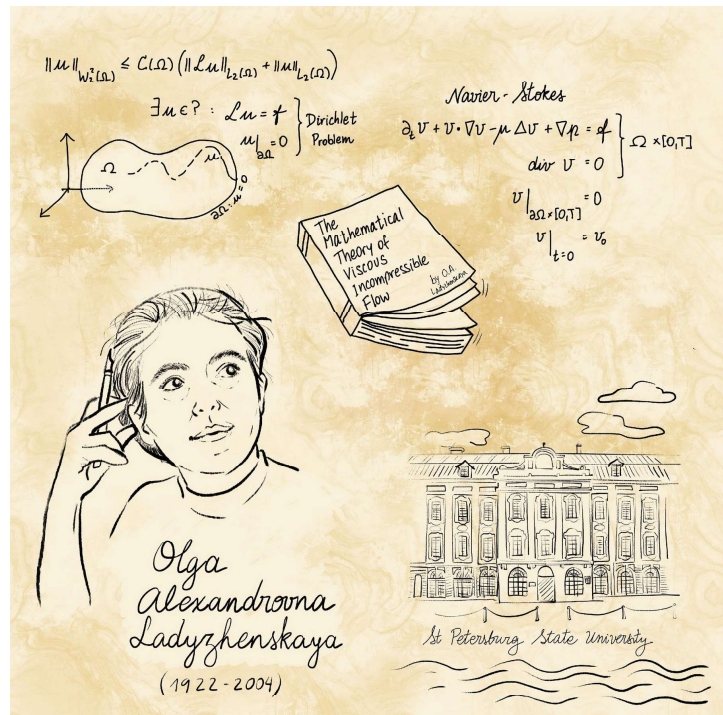 ‖u‖_{W₂²(Ω)} ≤ C(Ω) (‖ℒu‖_{L₂(Ω)} + ‖u‖_{L₂(Ω)})
∃u∈? : ℒu = f } Dirichlet
u|_{∂Ω} = 0 Problem
Ω u
∂Ω: u = 0
Navier-Stokes
∂ₜv + v·∇v - μΔv + ∇p = f } Ω×[0,T]
div v = 0
v|_{∂Ω×[0,T]} = 0
v|_{t=0} = v₀
The
Mathematical
Theory of
Viscous
Incompressible
Flow
by O.A.
Ladyzhenskaya
Olga
Alexandrovna
Ladyzhenskaya
(1922-2004)
St Petersburg State University